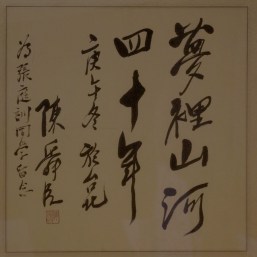 夢裡山河
四十年
庚午冬於台北
陳舜臣
為張庭訓同學留念